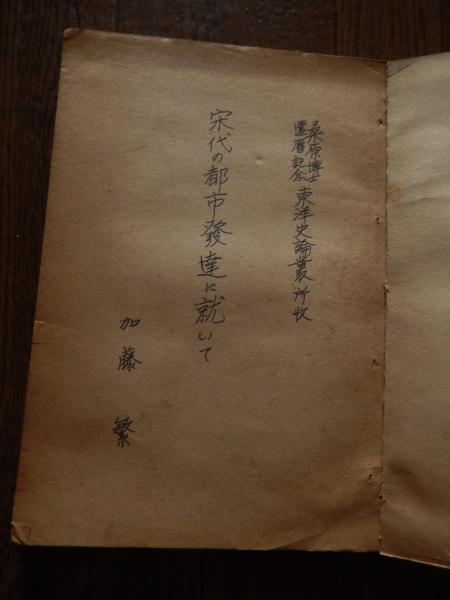 桑原博士
還暦記念
東洋史論叢所收
宋代の都市發達に就いて
加藤繁